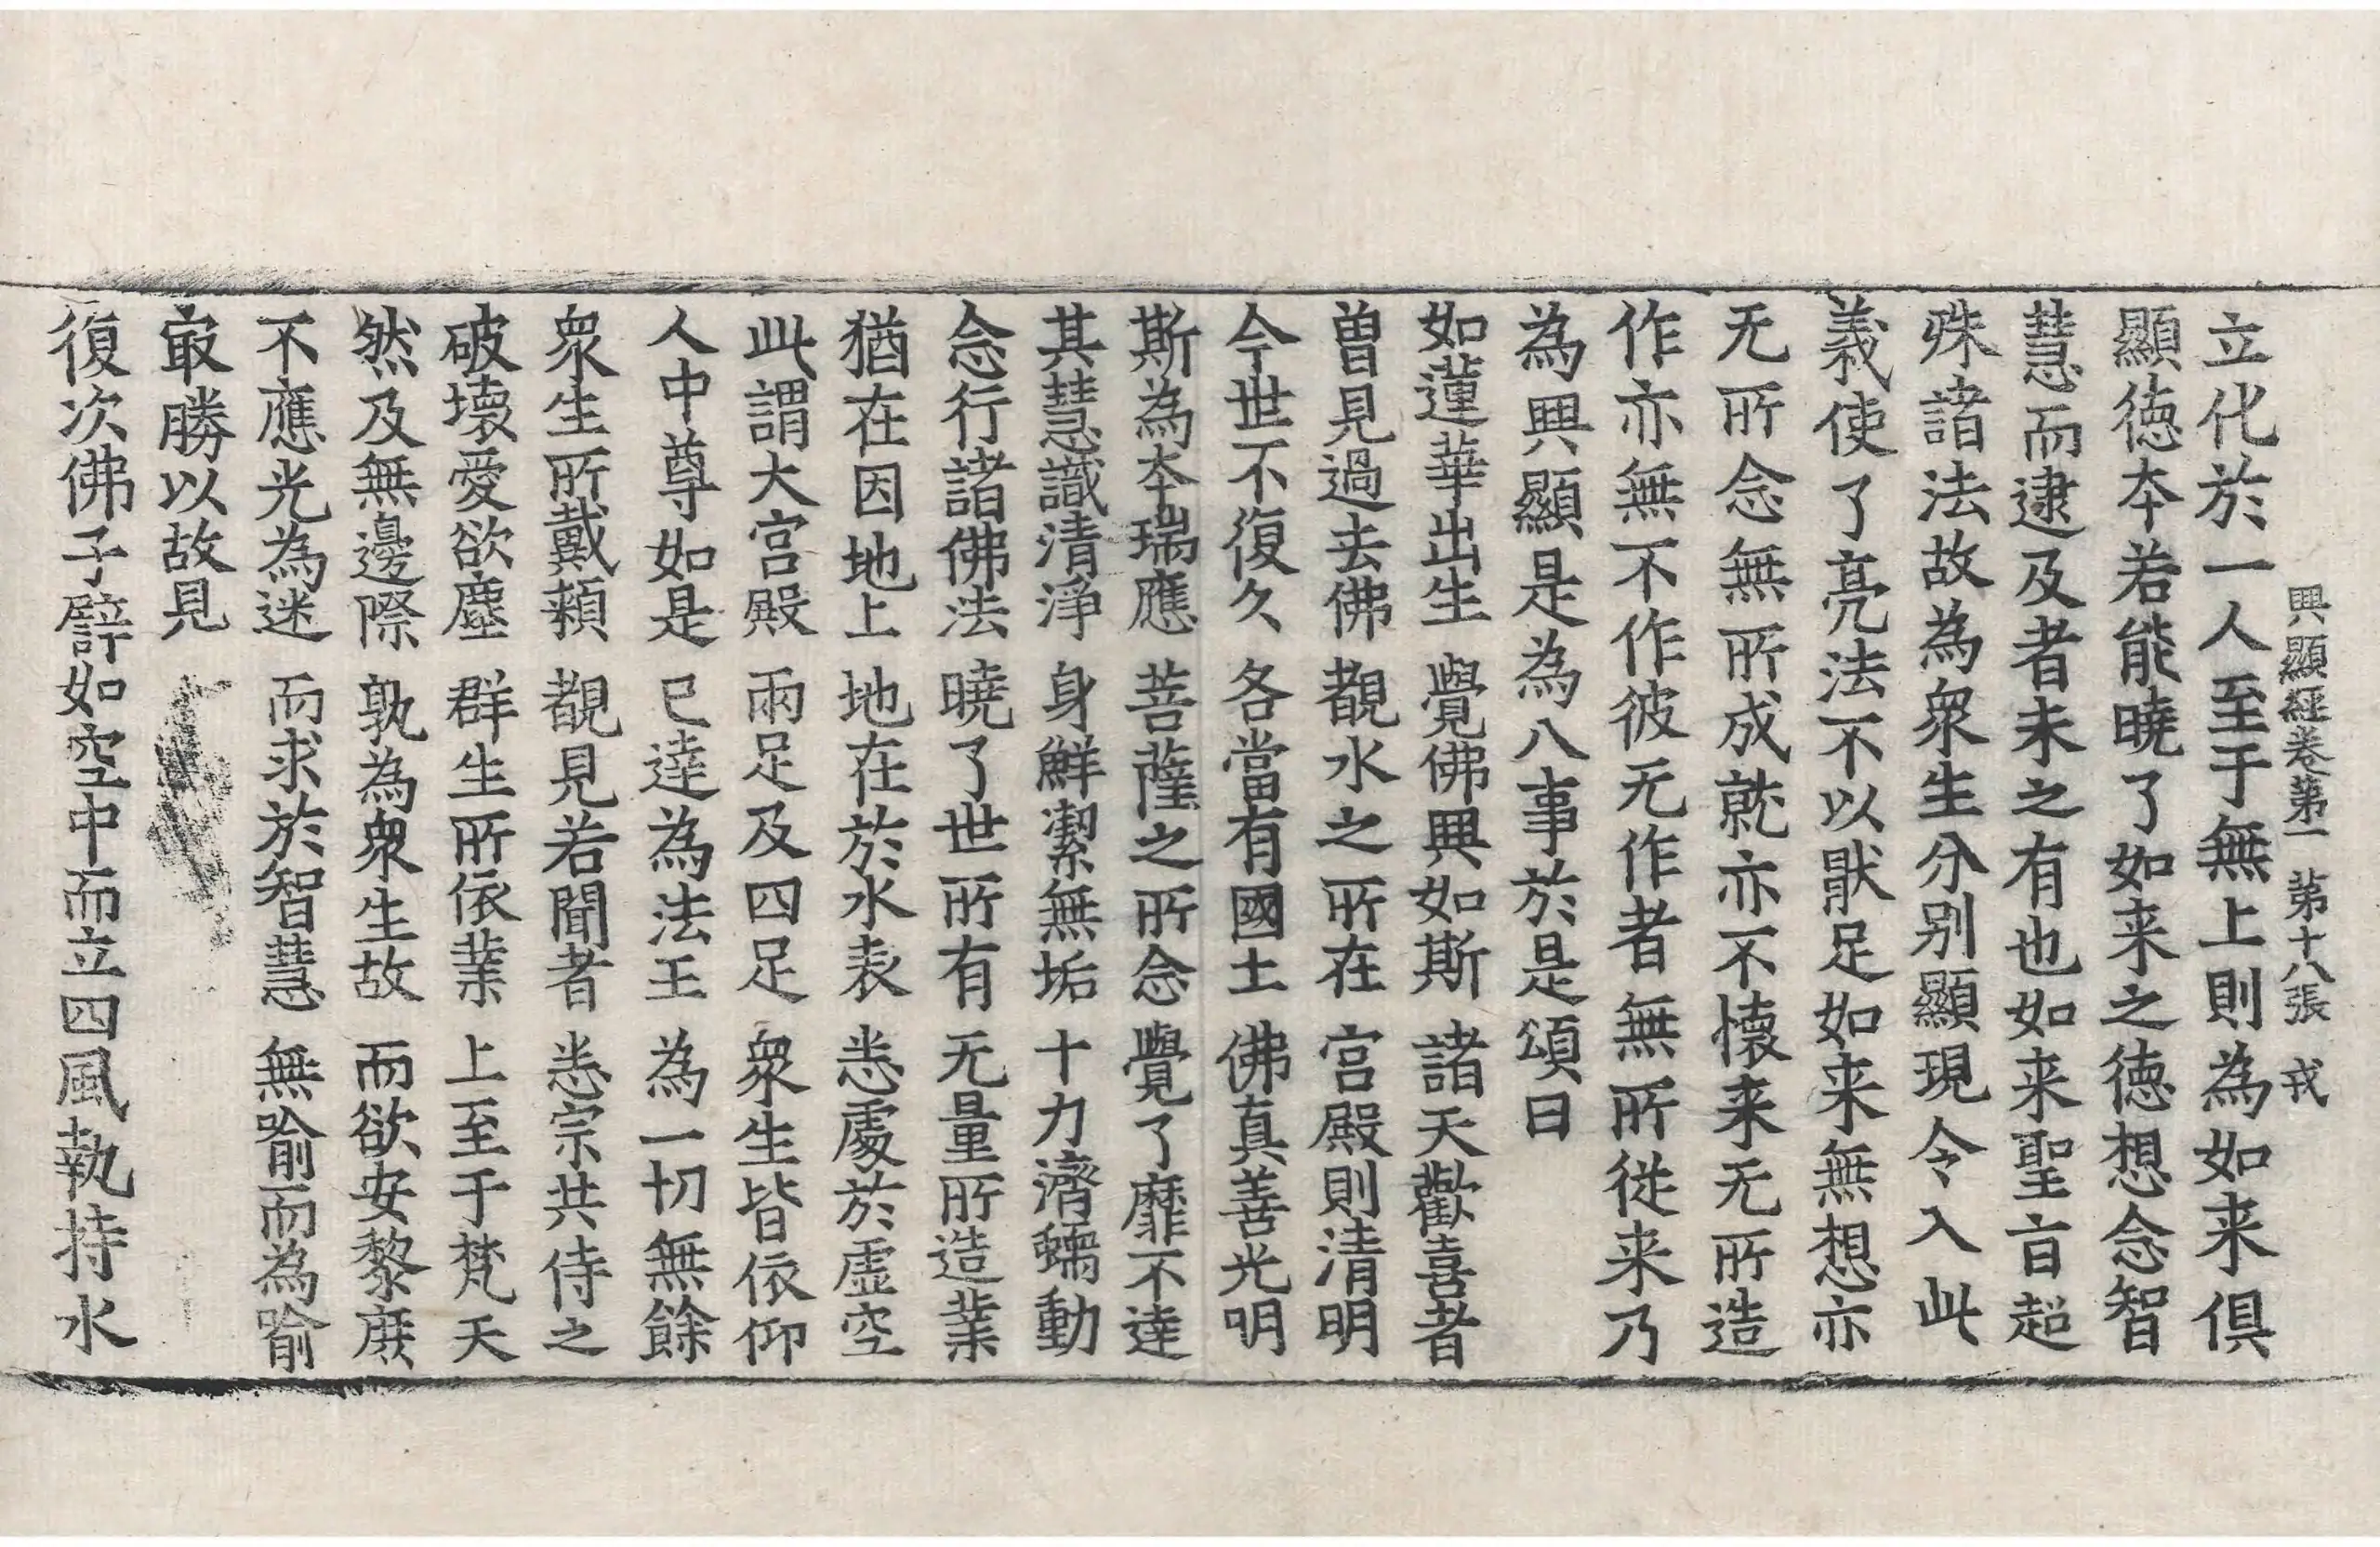 興顯經卷第一 第十八張 戎
立化於一人至于無上則為如来俱
顯徳夲若能曉了如来之徳想念智
慧而逮及者未之有也如来聖㫖超
殊諸法故為衆生分別顯現令入此
義使了亮法不以猒足如来無想亦
无所念無所成就亦不懷来无所造
作亦無不作彼无作者無所従来乃
為興顯是為八事於是頌曰
如蓮華出生 覺佛興如斯 諸天歡喜者
曽見過去佛 覩水之所在 宫殿則清明
今世不復久 各當有國土 佛真善光明
斯為夲瑞應 菩薩之所念 覺了靡不達
其慧識清淨 身鮮潔無垢 十力濟蠕動
念行諸佛法 曉了世所有 无量所造業
猶在因地上 地在於水表 悉處於虚空
此謂大宫殿 兩足及四足 衆生皆依仰
人中尊如是 已達為法王 為一切無餘
衆生所戴頼 覩見若聞者 悉宗共侍之
破壞愛欲塵 群生所依業 上至于梵天
然及無邊際 孰為衆生故 而欲安黎庶
不應光為迷 而求於智慧 無喻而為喻
㝡勝以故見
復次佛子譬如空中而立四風執持水